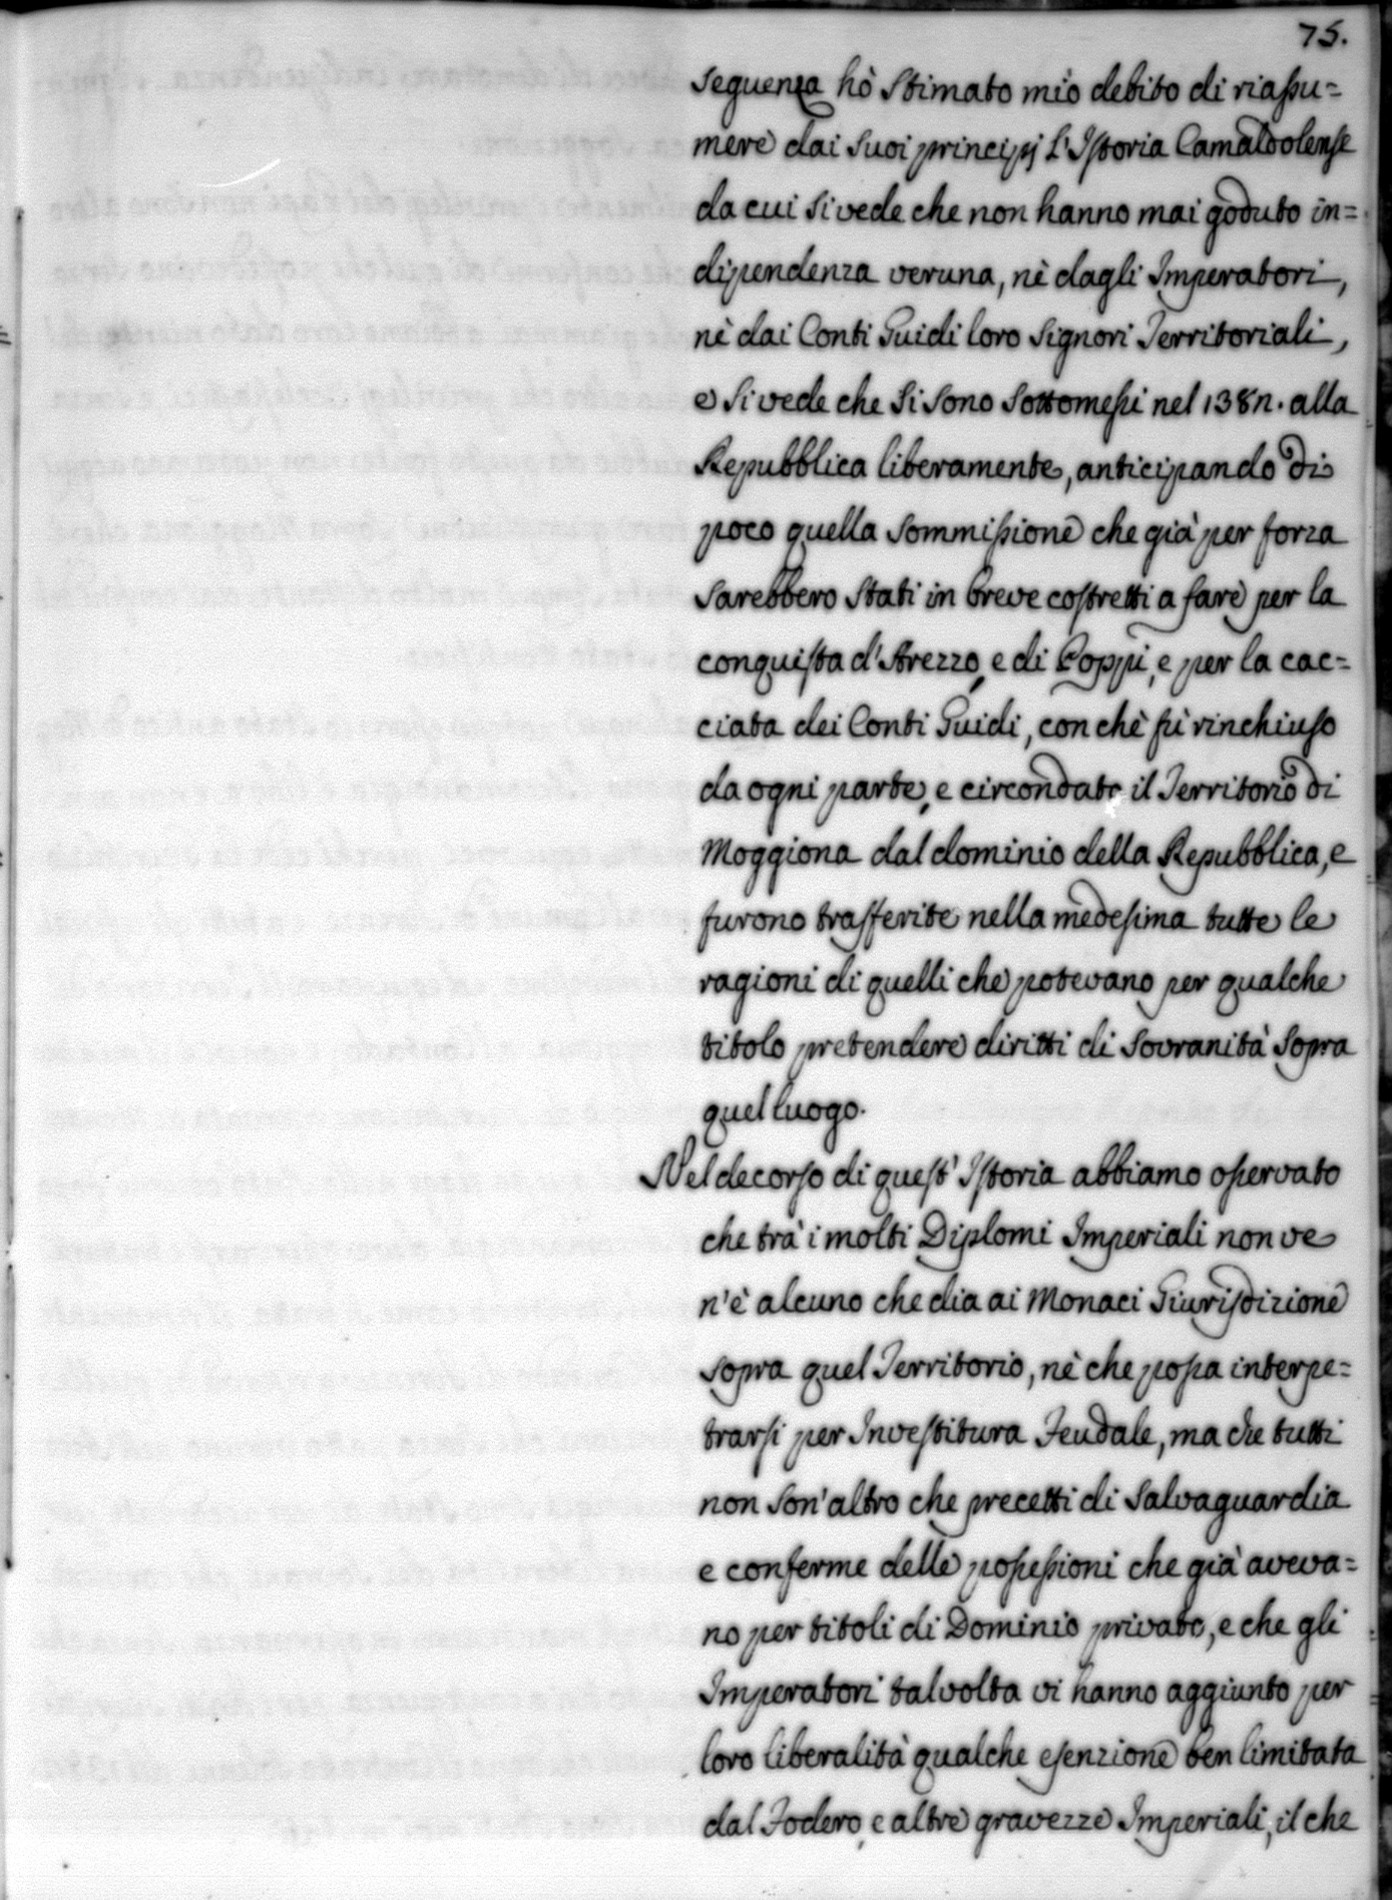 75.
seguenza hò stimato mio debito di riassu=
mere dai suoi principj L'Istoria Camaldolense
da cui si vede che non hanno mai goduto in=
dipendenza veruna, nè dagli Imperatori,
nè dai Conti Guidi loro Signori Territoriali,
e si vede che si sono sottomessi nel 138n. alla
Repubblica liberamente, anticipando di
poco quella sommissione che già per forza
sarebbero stati in breve costretti a fare per la
conquista d'Arezzo, e di Poppi, e per la cac=
ciata dei Conti Guidi, con chè fù rinchiuso
da ogni parte, e circondato il Territorio di
Moggiona dal dominio della Repubblica, e
furono trasferite nella medesima tutte le
ragioni di quelli che potevano per qualche
titolo pretendere diritti di Sovranità sopra
quel luogo.
Nel decorso di quest'Istoria abbiamo osservato
che trà i molti Diplomi Imperiali non ve
n'è alcuno che dia ai Monaci Giurisdizione
sopra quel Territorio, nè che possa interpe=
trarsi per Investitura Feudale, ma che tutti
non son'altro che precetti di Salvaguardia
e conferme delle possessioni che già aveva=
no per titoli di Dominio privato, e che gli
Imperatori talvolta vi hanno aggiunto per
loro liberalità qualche esenzione ben limitata
dal Fodero, e altre gravezze Imperiali, il che